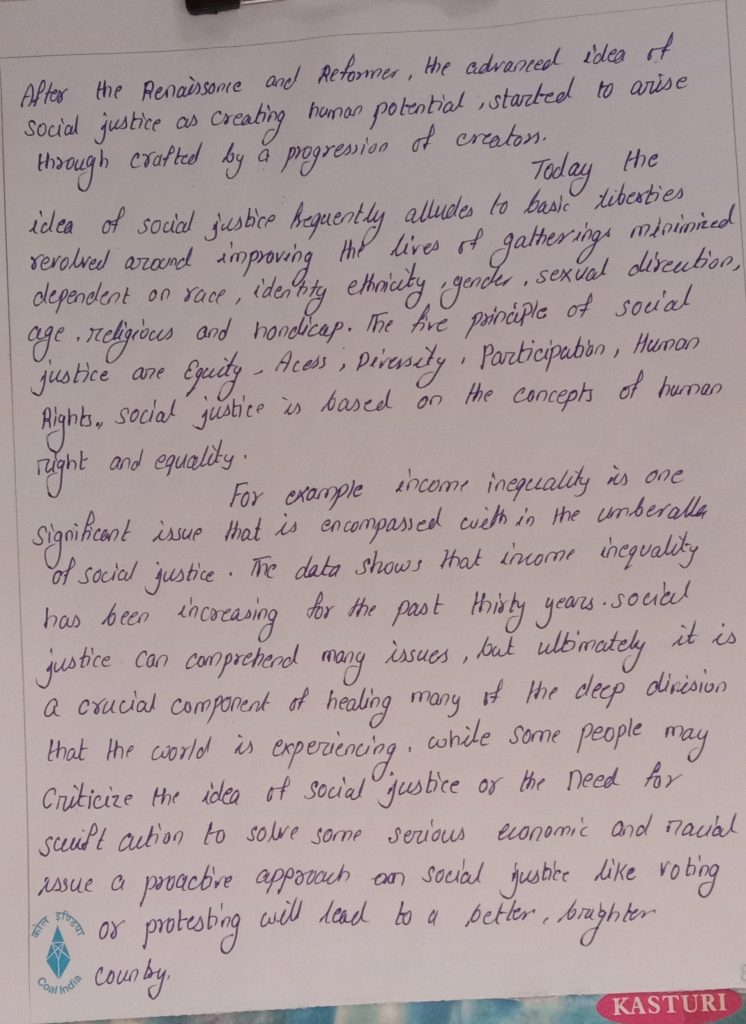 After the Renaissance and Reformer, the advanced idea of
social justice as creating human potential, started to arise
through crafted by a progression of creators.
Today the
idea of social justice frequently alludes to basic liberties
revolved around improving the lives of gatherings minimized
dependent on race, identity ethnicity, gender, sexual direction,
age. religious and handicap. The five principle of social
justice are Equity, Acess, Diversity, Participation, Human
Rights., social justice is based on the concepts of human
right and equality.
For example income inequality is one
significant issue that is encompassed with in the umberalla
of social justice. The data shows that income inequality
has been increasing for the past thirty years. social
justice can comprehend many issues, but ultimately it is
a crucial component of healing many of the deep division
that the world is experiencing. while some people may
Criticize the idea of social justice or the need for
swift action to solve some serious economic and racial
issue a proactive approach on social justice like voting
or protesting will lead to a better, brighter
country.
कोल इण्डिया
Coal India
KASTURI